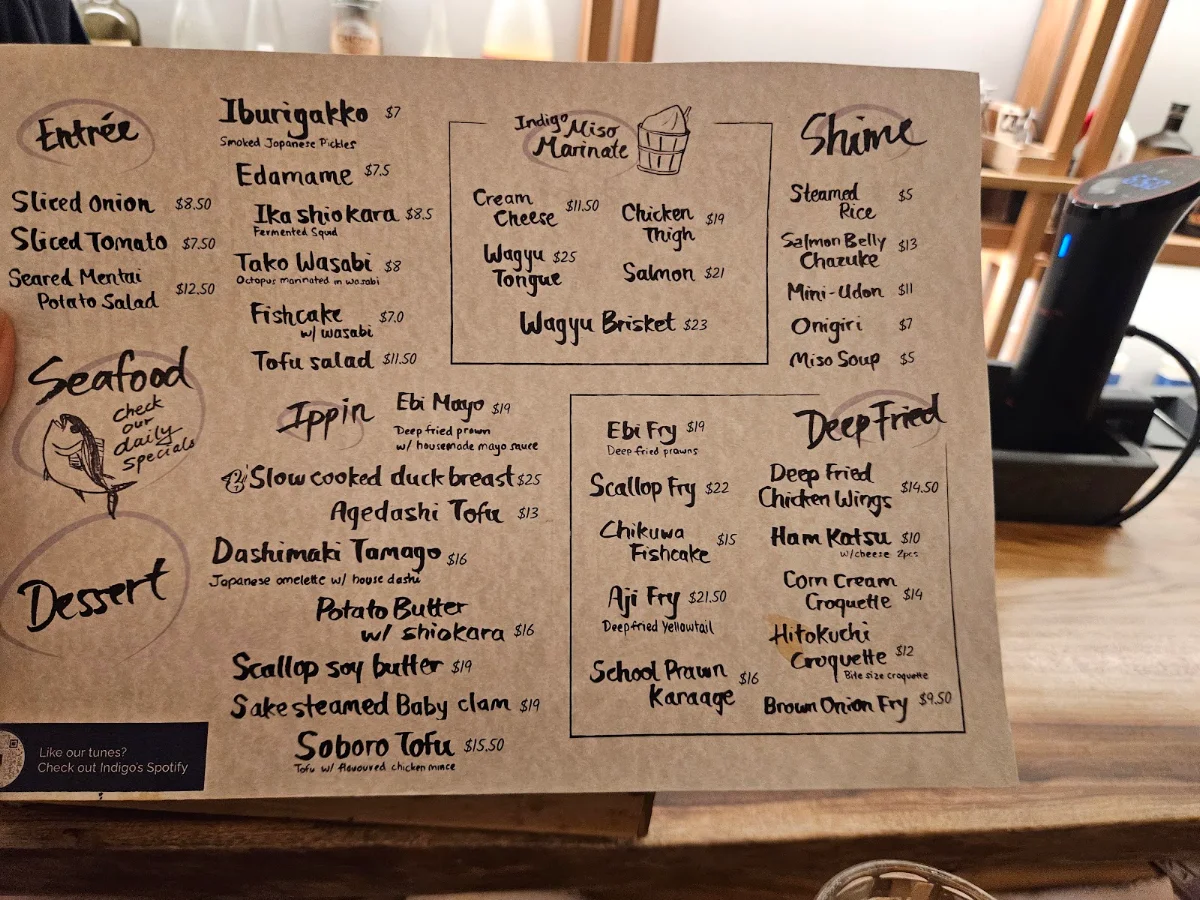 Entrée
Sliced Onion $8.50
Sliced Tomato $7.50
Seared Mentai
Potato Salad $12.50
Iburigakko $7
Smoked Japanese Pickles
Edamame $7.5
Ika shiokara $8.5
Fermented Squid
Tako Wasabi $8
Octopus marinated in wasabi
Fishcake $7.0
w/ wasabi
Tofu salad $11.50
Indigo Miso
Marinate
Cream
Cheese $11.50
Wagyu $25
Tongue
Chicken
Thigh $19
Salmon $21
Wagyu Brisket $23
Shime
Steamed
Rice $5
Salmon Belly
Chazuke $13
Mini-Udon $11
Onigiri $7
Miso Soup $5
Seafood
check
our
daily
specials
Dessert
Ippin
Ebi Mayo $19
Deep fried prawn
w/ housemade mayo sauce
Slow cooked duck breast $25
Agedashi Tofu $13
Dashimaki Tamago $16
Japanese omelette w/ house dashi
Potato Butter
w/ shiokara $16
Scallop soy butter $19
Sake steamed Baby clam $19
Soboro Tofu $15.50
Tofu w/ flavoured chicken mince
Deep Fried
Ebi Fry $19
Deep fried prawns
Scallop Fry $22
Chikuwa
Fishcake $15
Aji Fry $21.50
Deepfried Yellowtail
School Prawn
Karaage $16
Deep Fried
Chicken Wings $14.50
Ham Katsu $10
w/cheese 2pcs
Corn Cream
Croquette $14
Hitokuchi
Croquette $12
Bite size croquette
Brown Onion Fry $9.50
Like our tunes?
Check out Indigo's Spotify